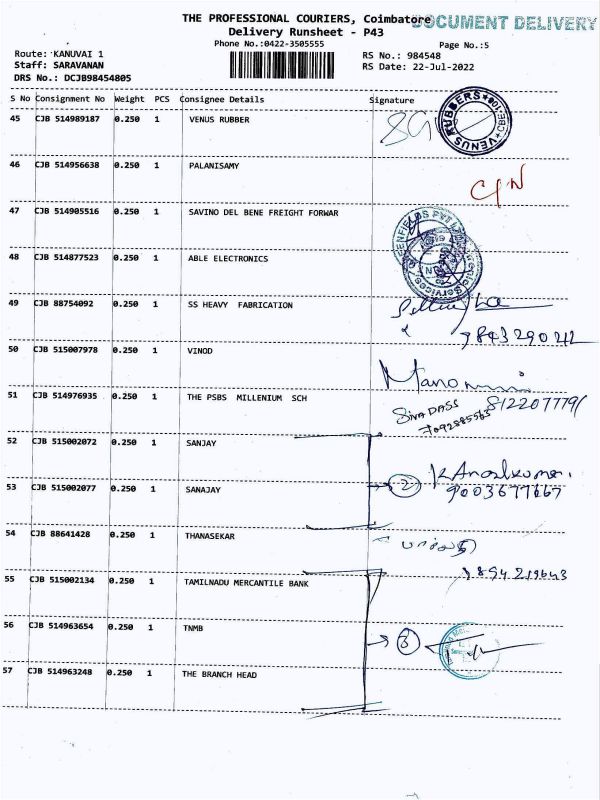 THE PROFESSIONAL COURIERS, Coimbatore
DOCUMENT DELIVERY
Delivery Runsheet - P43
Phone No.:0422-3505555
Page No.:5
Route: KANUVAI 1
RS No.: 984548
Staff: SARAVANAN
RS Date: 22-Jul-2022
DRS No.: DCJB98454805
S No Consignment No Weight PCS Consignee Details Signature
45 CJB 514989187 0.250 1 VENUS RUBBER
VENUS RUBBERS
46 CJB 514956638 0.250 1 PALANISAMY
47 CJB 514905516 0.250 1 SAVINO DEL BENE FREIGHT FORWAR
48 CJB 514877523 0.250 1 ABLE ELECTRONICS
49 CJB 88754092 0.250 1 SS HEAVY FABRICATION
50 CJB 515007978 0.250 1 VINOD
51 CJB 514976935 0.250 1 THE PSBS MILLENIUM SCH
SIVADASS
52 CJB 515002072 0.250 1 SANJAY
53 CJB 515002077 0.250 1 SANAJAY
2
9003677667
54 CJB 88641428 0.250 1 THANASEKAR
55 CJB 515002134 0.250 1 TAMILNADU MERCANTILE BANK
56 CJB 514963654 0.250 1 TNMB
3
57 CJB 514963248 0.250 1 THE BRANCH HEAD